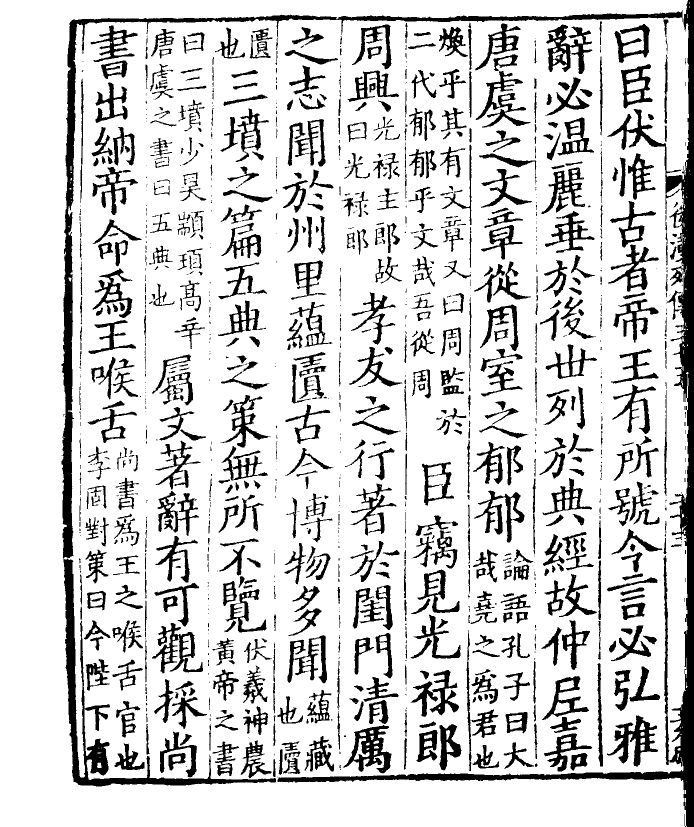 曰臣伏惟古者帝王有所號令言必弘雅
辭必温麗垂於後世列於典經故仲尼嘉
唐虞之文章從周室之郁郁論語孔子曰大哉堯之爲君也
煥乎其有文章又曰周監於二代郁郁乎文哉吾從周臣竊見光禄郎
周興光禄主郎故曰光禄郎孝友之行著於閨門清厲
之志聞於州里蘊匵古今博物多聞蘊藏也匵
匱也三墳之篇五典之策無所不覽伏羲神農黄帝之書
曰三墳少昊顓頊高辛唐虞之書曰五典也屬文著辭有可觀採尚
書出納帝命爲王喉舌尚書爲王之喉舌官也李固對策曰今陛下有